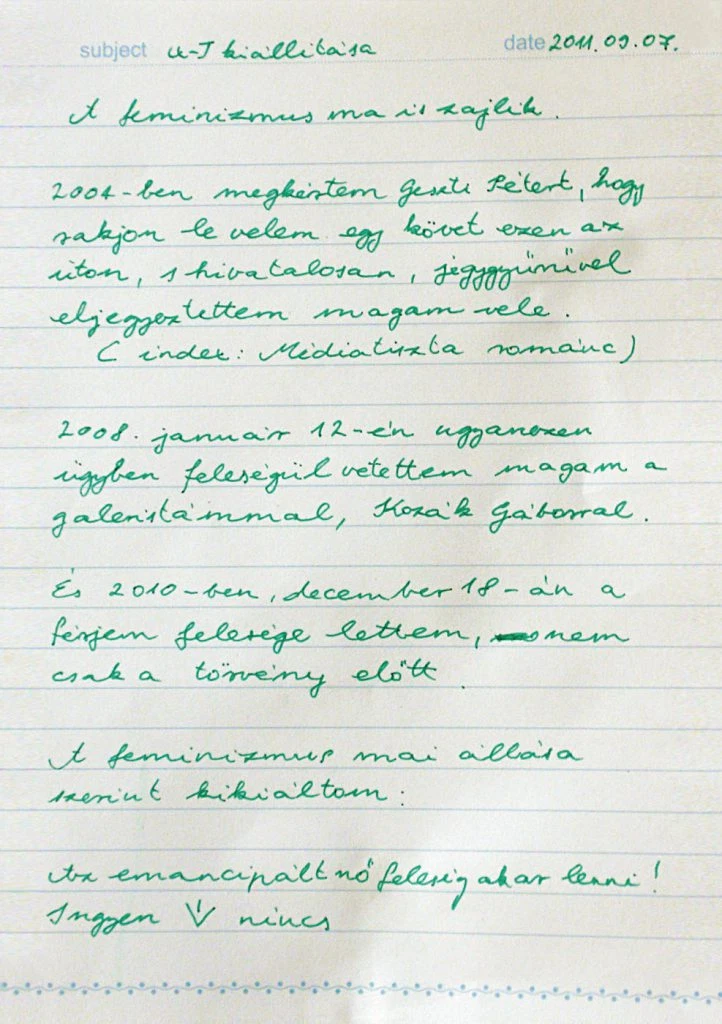 subject u-J kiállítása date 2011.09.07.
A feminizmus ma is zajlik.
2004-ben megkértem Geszti Pétert, hogy
rakjon le velem egy követ ezen az
úton, s hivatalosan, jéggyűrűvel
eljegyeztettem magam vele.
( index: Médiatiszta románc)
2008. január 12-én ugyanezen
ügyben feleségül vetettem magam a
galeristámmal, Kozák Gáborral.
És 2010-ben, december 18-án a
férjem felesége lettem, nem
csak a törvény előtt.
A feminizmus mai állása
szerint kikiáltom:
Az emancipált nő feleség akar lenni!
Ingyen nincs